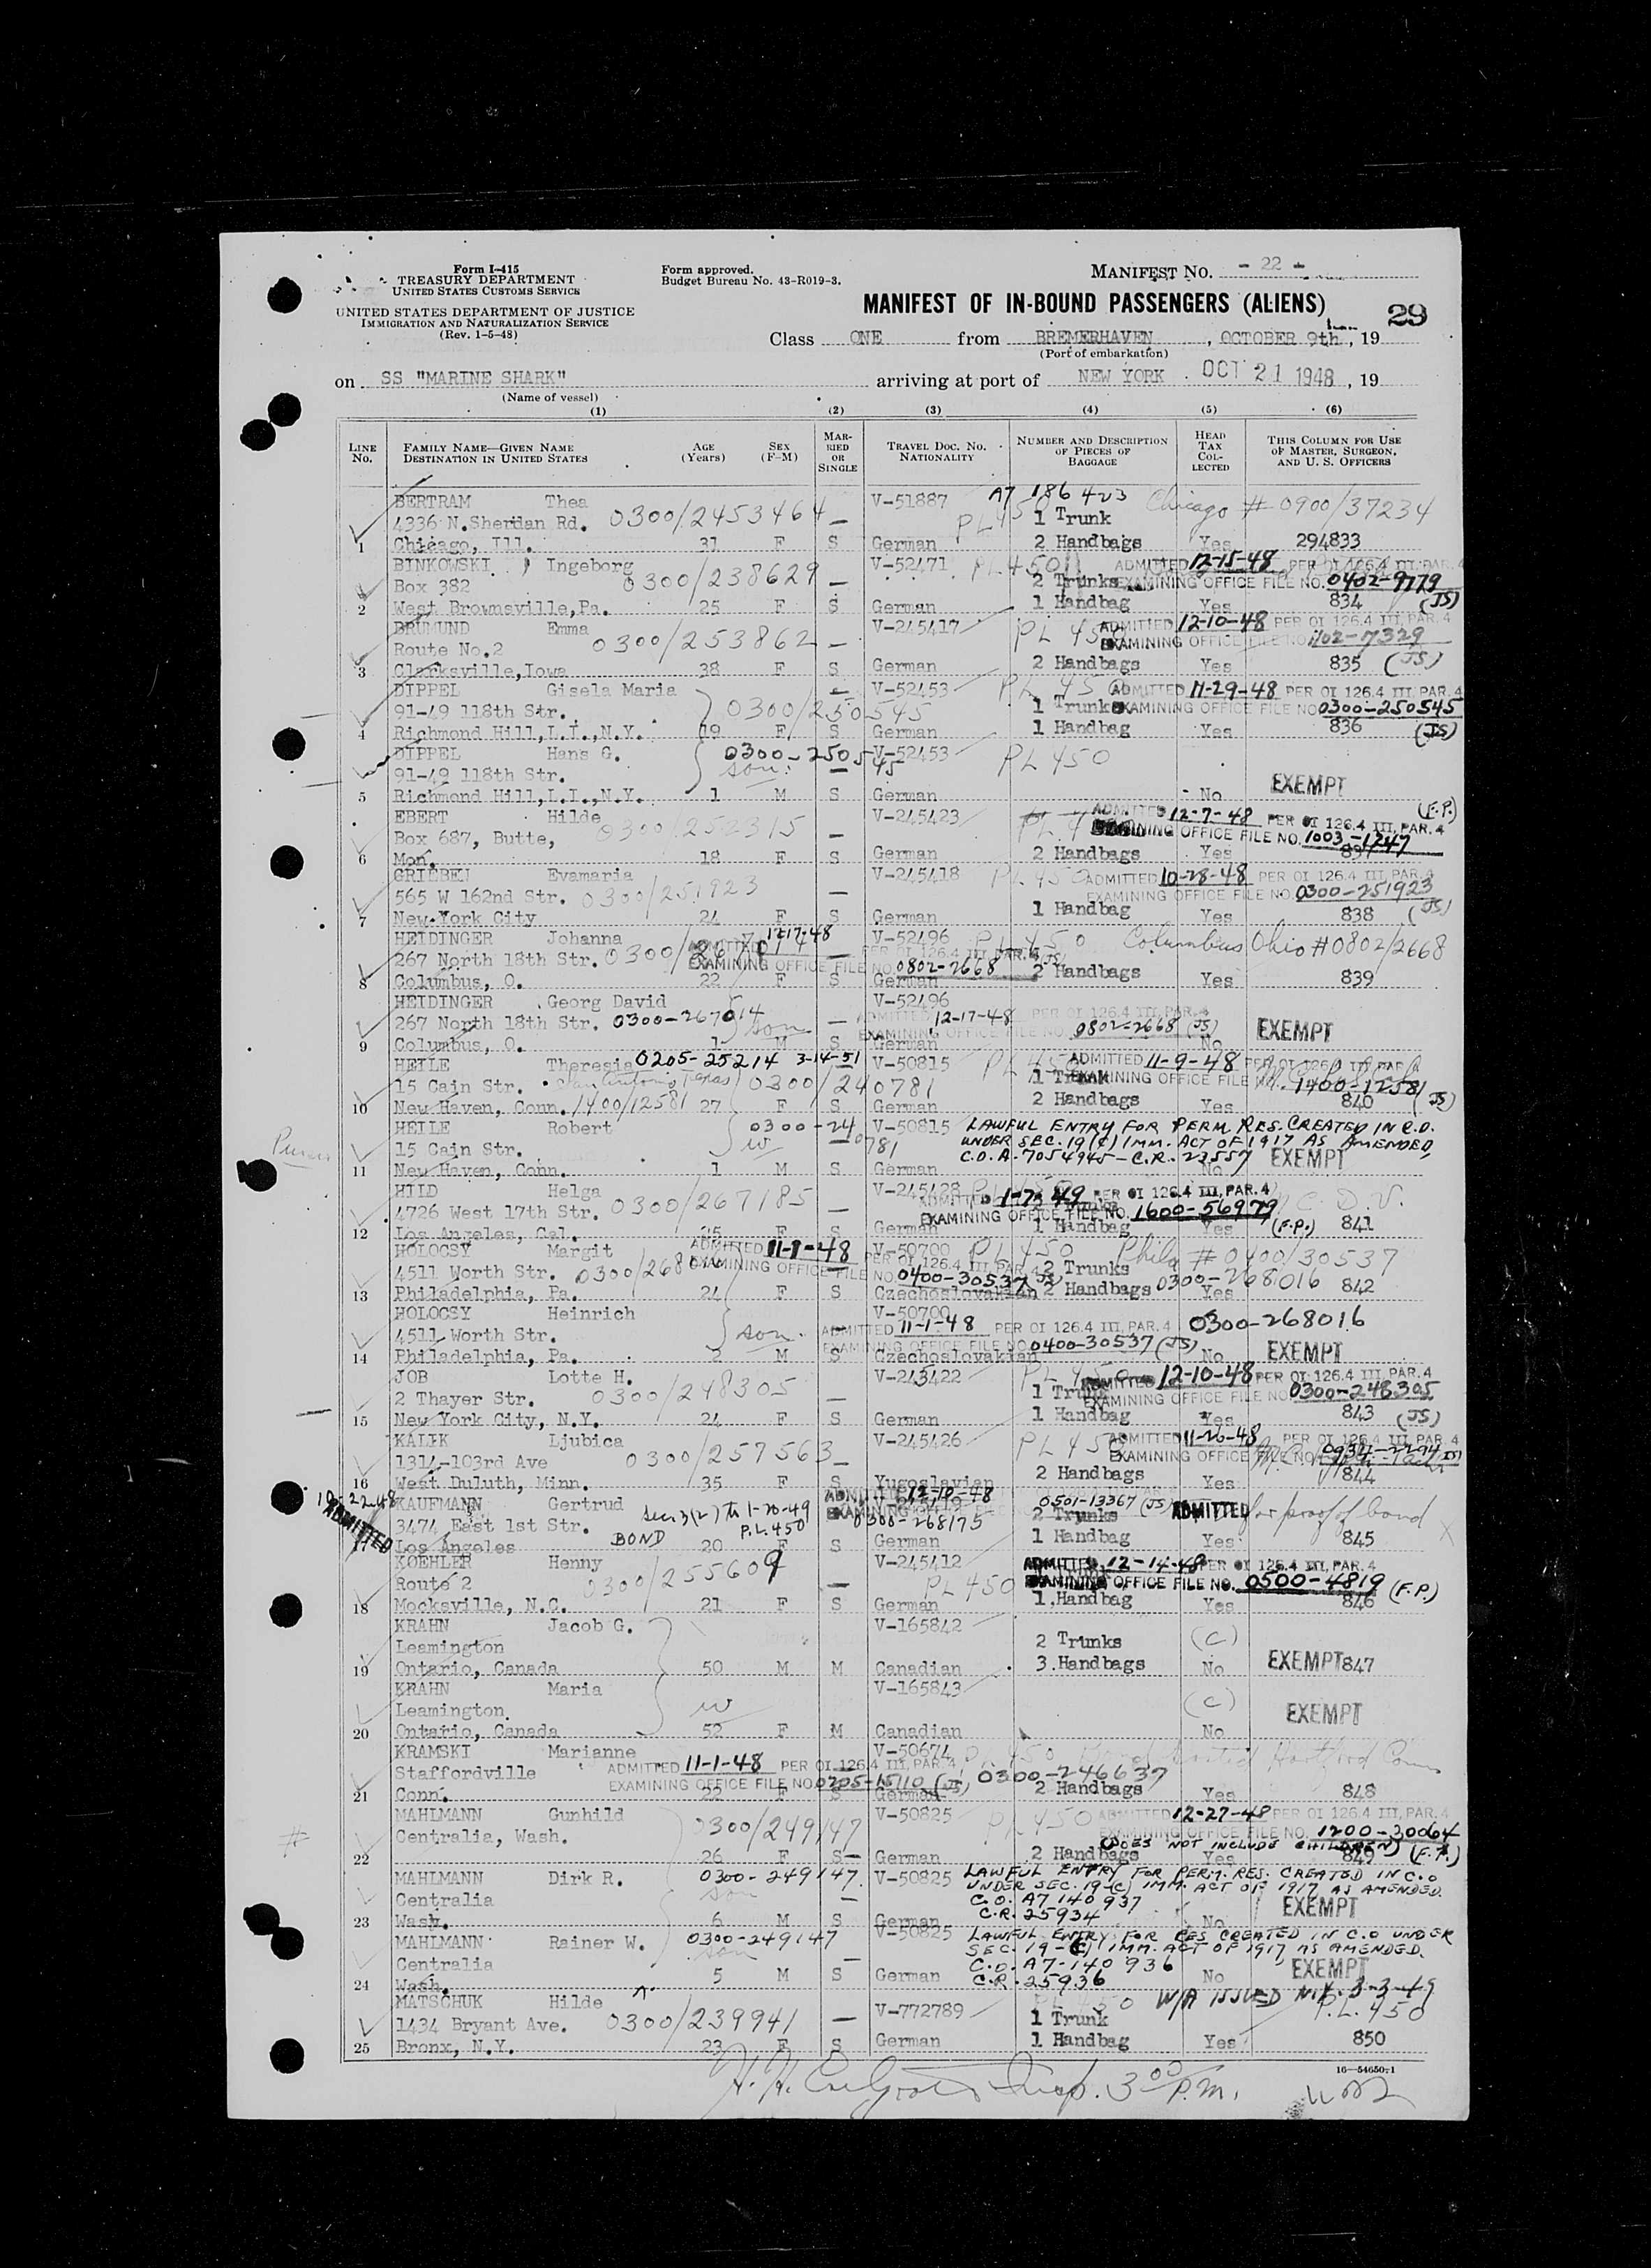 Form I-415
TREASURY DEPARTMENT
UNITED STATES CUSTOMS SERVICE
UNITED STATES DEPARTMENT OF JUSTICE
IMMIGRATION AND NATURALIZATION SERVICE
(Rev. 1-5-48)
Form approved.
Budget Bureau No. 43-R019-3.
MANIFEST NO. - 22 -
MANIFEST OF IN-BOUND PASSENGERS (ALIENS)
29
Class ONE from BREMERHAVEN, OCTOBER 9th, 19
(Port of embarkation)
on SS "MARINE SHARK" arriving at port of NEW YORK OCT 21 1948, 19
(Name of vessel)
(1) (2) (3) (4) (5) (6)
LINE No. FAMILY NAME—GIVEN NAME DESTINATION IN UNITED STATES AGE (Years) SEX (F-M) MARRIED OR SINGLE TRAVEL DOC. No. NATIONALITY NUMBER AND DESCRIPTION OF PIECES OF BAGGAGE HEAD TAX COLLECTED THIS COLUMN FOR USE OF MASTER, SURGEON, AND U. S. OFFICERS
BERTRAM Thea V-51887 A7 186 423 Chicago # 0900/37234
4336 N.Sheridan Rd. 0300/2453464 — PL 450 1 Trunk
1 Chicago, Ill. 31 F S German 2 Handbags Yes 294833
BINKOWSKI Ingeborg V-52471 PL 450 ADMITTED 12-15-48 PER OI 126.4 III, PAR. 4
Box 382 0300/238629 — 2 Trunks EXAMINING OFFICE FILE NO. 0402-9779
2 West Brownsville,Pa. 25 F S German 1 Handbag Yes 834 (JS)
BRUMUND Emma V-245417 PL 450 ADMITTED 12-10-48 PER OI 126.4 III, PAR. 4
Route No.2 0300/253862 — EXAMINING OFFICE FILE NO. 1102-7329
3 Clarksville,Iowa 38 F S German 2 Handbags Yes 835 (JS)
DIPPEL Gisela Maria — V-52453 PL 450 ADMITTED 11-29-48 PER OI 126.4 III, PAR. 4
91-49 118th Str. 0300/250545 1 Trunk EXAMINING OFFICE FILE NO. 0300-250545
4 Richmond Hill,L.I.,N.Y. 19 F S German 1 Handbag Yes 836 (JS)
DIPPEL Hans G. 0300-250545 V-52453 PL 450
91-49 118th Str. son —
5 Richmond Hill,L.I.,N.Y. 1 M S German No EXEMPT
EBERT Hilde V-245423 PL 4 ADMITTED 12-7-48 PER OI 126.4 III, PAR. 4 (F.P.)
Box 687, Butte, 0300/252315 — EXAMINING OFFICE FILE NO. 1003-1247
6 Mon. 18 F S German 2 Handbags Yes 837
GRIEBEL Evamaria V-245418 PL 450 ADMITTED 10-28-48 PER OI 126.4 III, PAR. 4
565 W 162nd Str. 0300/251923 — EXAMINING OFFICE FILE NO. 0300-251923
7 New York City 24 F S German 1 Handbag Yes 838 (JS)
HEIDINGER Johanna 12-17-48 V-52496 PL 450 Columbus Ohio #0802/2668
267 North 18th Str. 0300/267014 ADMITTED PER OI 126.4 III, PAR. 4 (JS)
EXAMINING OFFICE FILE NO. 0802-2668
8 Columbus, O. 22 F S German 2 Handbags Yes 839
HEIDINGER Georg David V-52496
267 North 18th Str. 0300-267014 son — ADMITTED 12-17-48 PER OI 126.4 III, PAR. 4
EXAMINING OFFICE FILE NO. 0802-2668 (JS) EXEMPT
9 Columbus, O. 1 M S German No
HEILE Theresia 0205-25214 3-14-51 V-50815 PL 450 ADMITTED 11-9-48 PER OI 126.4 III, PAR. 4
15 Cain Str. San Antonio Texas 0300/240781 1 Trunk EXAMINING OFFICE FILE NO. 1400-12581
10 New Haven, Conn. 1400/12581 27 F S German 2 Handbags Yes 840 (JS)
HEILE Robert 0300-240781 V-50815 LAWFUL ENTRY FOR PERM. RES. CREATED IN C.O.
15 Cain Str. — UNDER SEC. 19(C) IMM. ACT OF 1917 AS AMENDED,
C.O. A-7054945 - C.R. 23557 EXEMPT
11 New Haven, Conn. 1 M S German No
HILD Helga V-245428 PL 450 ADMITTED 1-7-49 PER OI 126.4 III, PAR. 4
4726 West 17th Str. 0300/267185 — EXAMINING OFFICE FILE NO. 1600-56979
12 Los Angeles, Cal. F S German 1 Handbag Yes (F.P.) 841
HOLOCSY Margit ADMITTED 11-1-48 V-50700 PL 450 Phila # 0400/30537
4511 Worth Str. 0300/268016 PER OI 126.4 III, PAR. 4 2 Trunks
EXAMINING OFFICE FILE NO. 0400-30537 JS
13 Philadelphia, Pa. 24 F S Czechoslovakian 2 Handbags 0300-268016 Yes 842
HOLOCSY Heinrich V-50700
4511 Worth Str. son. ADMITTED 11-1-48 PER OI 126.4 III, PAR. 4 0300-268016
EXAMINING OFFICE FILE NO. 0400-30537 (JS)
14 Philadelphia, Pa. 2 M S Czechoslovakian No EXEMPT
JOB Lotte H. V-243422 PL 450 ADMITTED 12-10-48 PER OI 126.4 III, PAR. 4
2 Thayer Str. 0300/248305 — 1 Trunk EXAMINING OFFICE FILE NO. 0300-248305
15 New York City, N.Y. 24 F S German 1 Handbag Yes 843 (JS)
KALIK Ljubica V-245426 PL 450 ADMITTED 11-26-48 PER OI 126.4 III, PAR. 4
1314-103rd Ave 0300/257563 — EXAMINING OFFICE FILE NO. 0934-2294 JS
16 West Duluth, Minn. 35 F S Yugoslavian 2 Handbags Yes 844
10-22-48 ADMITTED
KAUFMANN Gertrud Sec. 3(2) to 1-20-49 ADMITTED 12-10-48 0501-13367 (JS) ADMITTED for proof of bond
3474 East 1st Str. P.L. 450 0300-268175 2 Trunks
17 Los Angeles BOND 20 F S German 1 Handbag Yes 845
KOEHLER Henny V-245412 ADMITTED 12-14-48 PER OI 126.4 III, PAR. 4
Route 2 0300/255609 — PL 450 EXAMINING OFFICE FILE NO. 0500-4819 (F.P.)
18 Mocksville, N.C. 21 F S German 1 Handbag Yes 846
KRAHN Jacob G. V-165842
Leamington 2 Trunks (C)
19 Ontario, Canada 50 M M Canadian 3 Handbags No EXEMPT 847
KRAHN Maria V-165843
Leamington w (C) EXEMPT
20 Ontario, Canada 52 F M Canadian No
KRAMSKI Marianne V-50674 PL 450 Bond posted Hartford Conn
Staffordville ADMITTED 11-1-48 PER OI 126.4 III, PAR. 4 0300-246637
EXAMINING OFFICE FILE NO. 0205-15110 (JS)
21 Conn. 22 F S German 2 Handbags Yes 848
MAHLMANN Gunhild V-50825 PL 450 ADMITTED 12-27-48 PER OI 126.4 III, PAR. 4
Centralia, Wash. 0300/249147 EXAMINING OFFICE FILE NO. 1200-30064
(DOES NOT INCLUDE CHILDREN) (F.P.)
22 26 F S — German 2 Handbags Yes 849
MAHLMANN Dirk R. 0300-249147 V-50825 LAWFUL ENTRY FOR PERM. RES. CREATED IN C.O
Centralia son — UNDER SEC. 19-(C) IMM. ACT OF 1917 AS AMENDED.
C.O. A7 140 937 EXEMPT
23 Wash. 6 M S German C.R. 25934 No
MAHLMANN Rainer W. 0300-249147 V-50825 LAWFUL ENTRY FOR RES CREATED IN C.O UNDER
Centralia son — SEC. 19-(C) IMM. ACT OF 1917 AS AMENDED.
C.O. A7-140 936
24 Wash. 5 M S German C.R. 25936 No EXEMPT
MATSCHUK Hilde V-772789 PL 450 W/A ISSUED N.Y. 3-3-49
1434 Bryant Ave. 0300/239941 — 1 Trunk P.L. 450
25 Bronx, N.Y. 23 F S German 1 Handbag Yes 850
16—54650-1
Insp. 3 00 P.M.